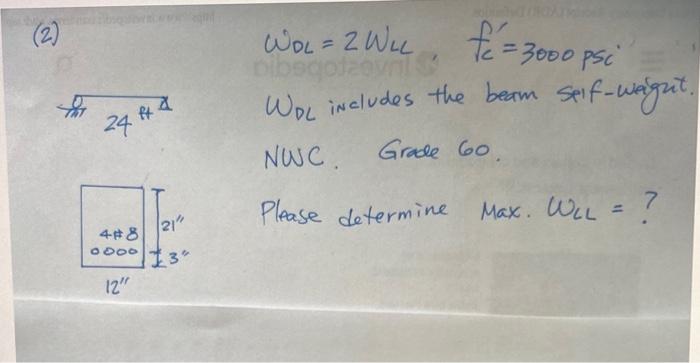 (2)
WDL = 2 WLL, fc' = 3000 psi
WDL includes the beam self-weight.
24 ft
NWC. Grade 60.
Please determine Max. WLL = ?
21"
4#8
3"
12"